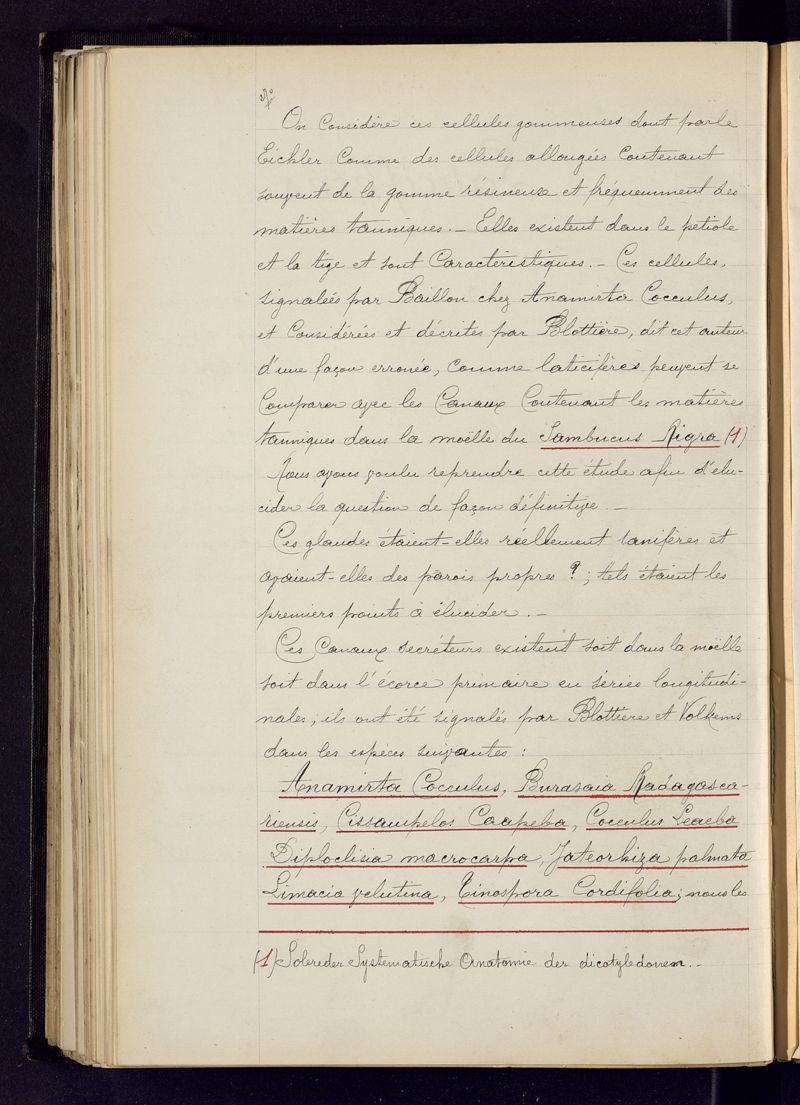 On Considère ces cellules gommeuses dont parle
Eichler Comme des cellules allongées Contenant
souvent de la gomme résineuse et fréquemment des
matières tanniques. — Elles existent dans le pétiole
et la tige et sont Caractéristiques. — Ces cellules,
signalées par Baillon chez Anamirta Cocculus,
et Considérées et décrites par Blottière, dit cet auteur
d'une façon erronée, comme laticifères peuvent se
Comparer avec les Canaux Contenant les matières
tanniques dans la moëlle du Sambucus Nigra (1)
Nous avons voulu reprendre cette étude afin d'élu-
cider la question de façon définitive. —
Ces glandes étaient-elles réellement tanifères et
avaient-elles des parois propres ? ; tels étaient les
premiers points à élucider. —
Ces Canaux secréteurs existent soit dans la moëlle
soit dans l'écorce primaire en séries longitudi-
nales ; ils ont été signalés par Blottiere et Volkens
dans les espèces suivantes :
Anamirta Cocculus, Burasaia Madagasca-
riensis, Cissampelos Caapeba, Cocculus Leaeba
Diploclisia macrocarpa, Jateorhiza palmata
Limacia velutina, Tinospora Cordifolia ; nous les
(1) Solereder Systematische Anatomie der dicotyledonen. —